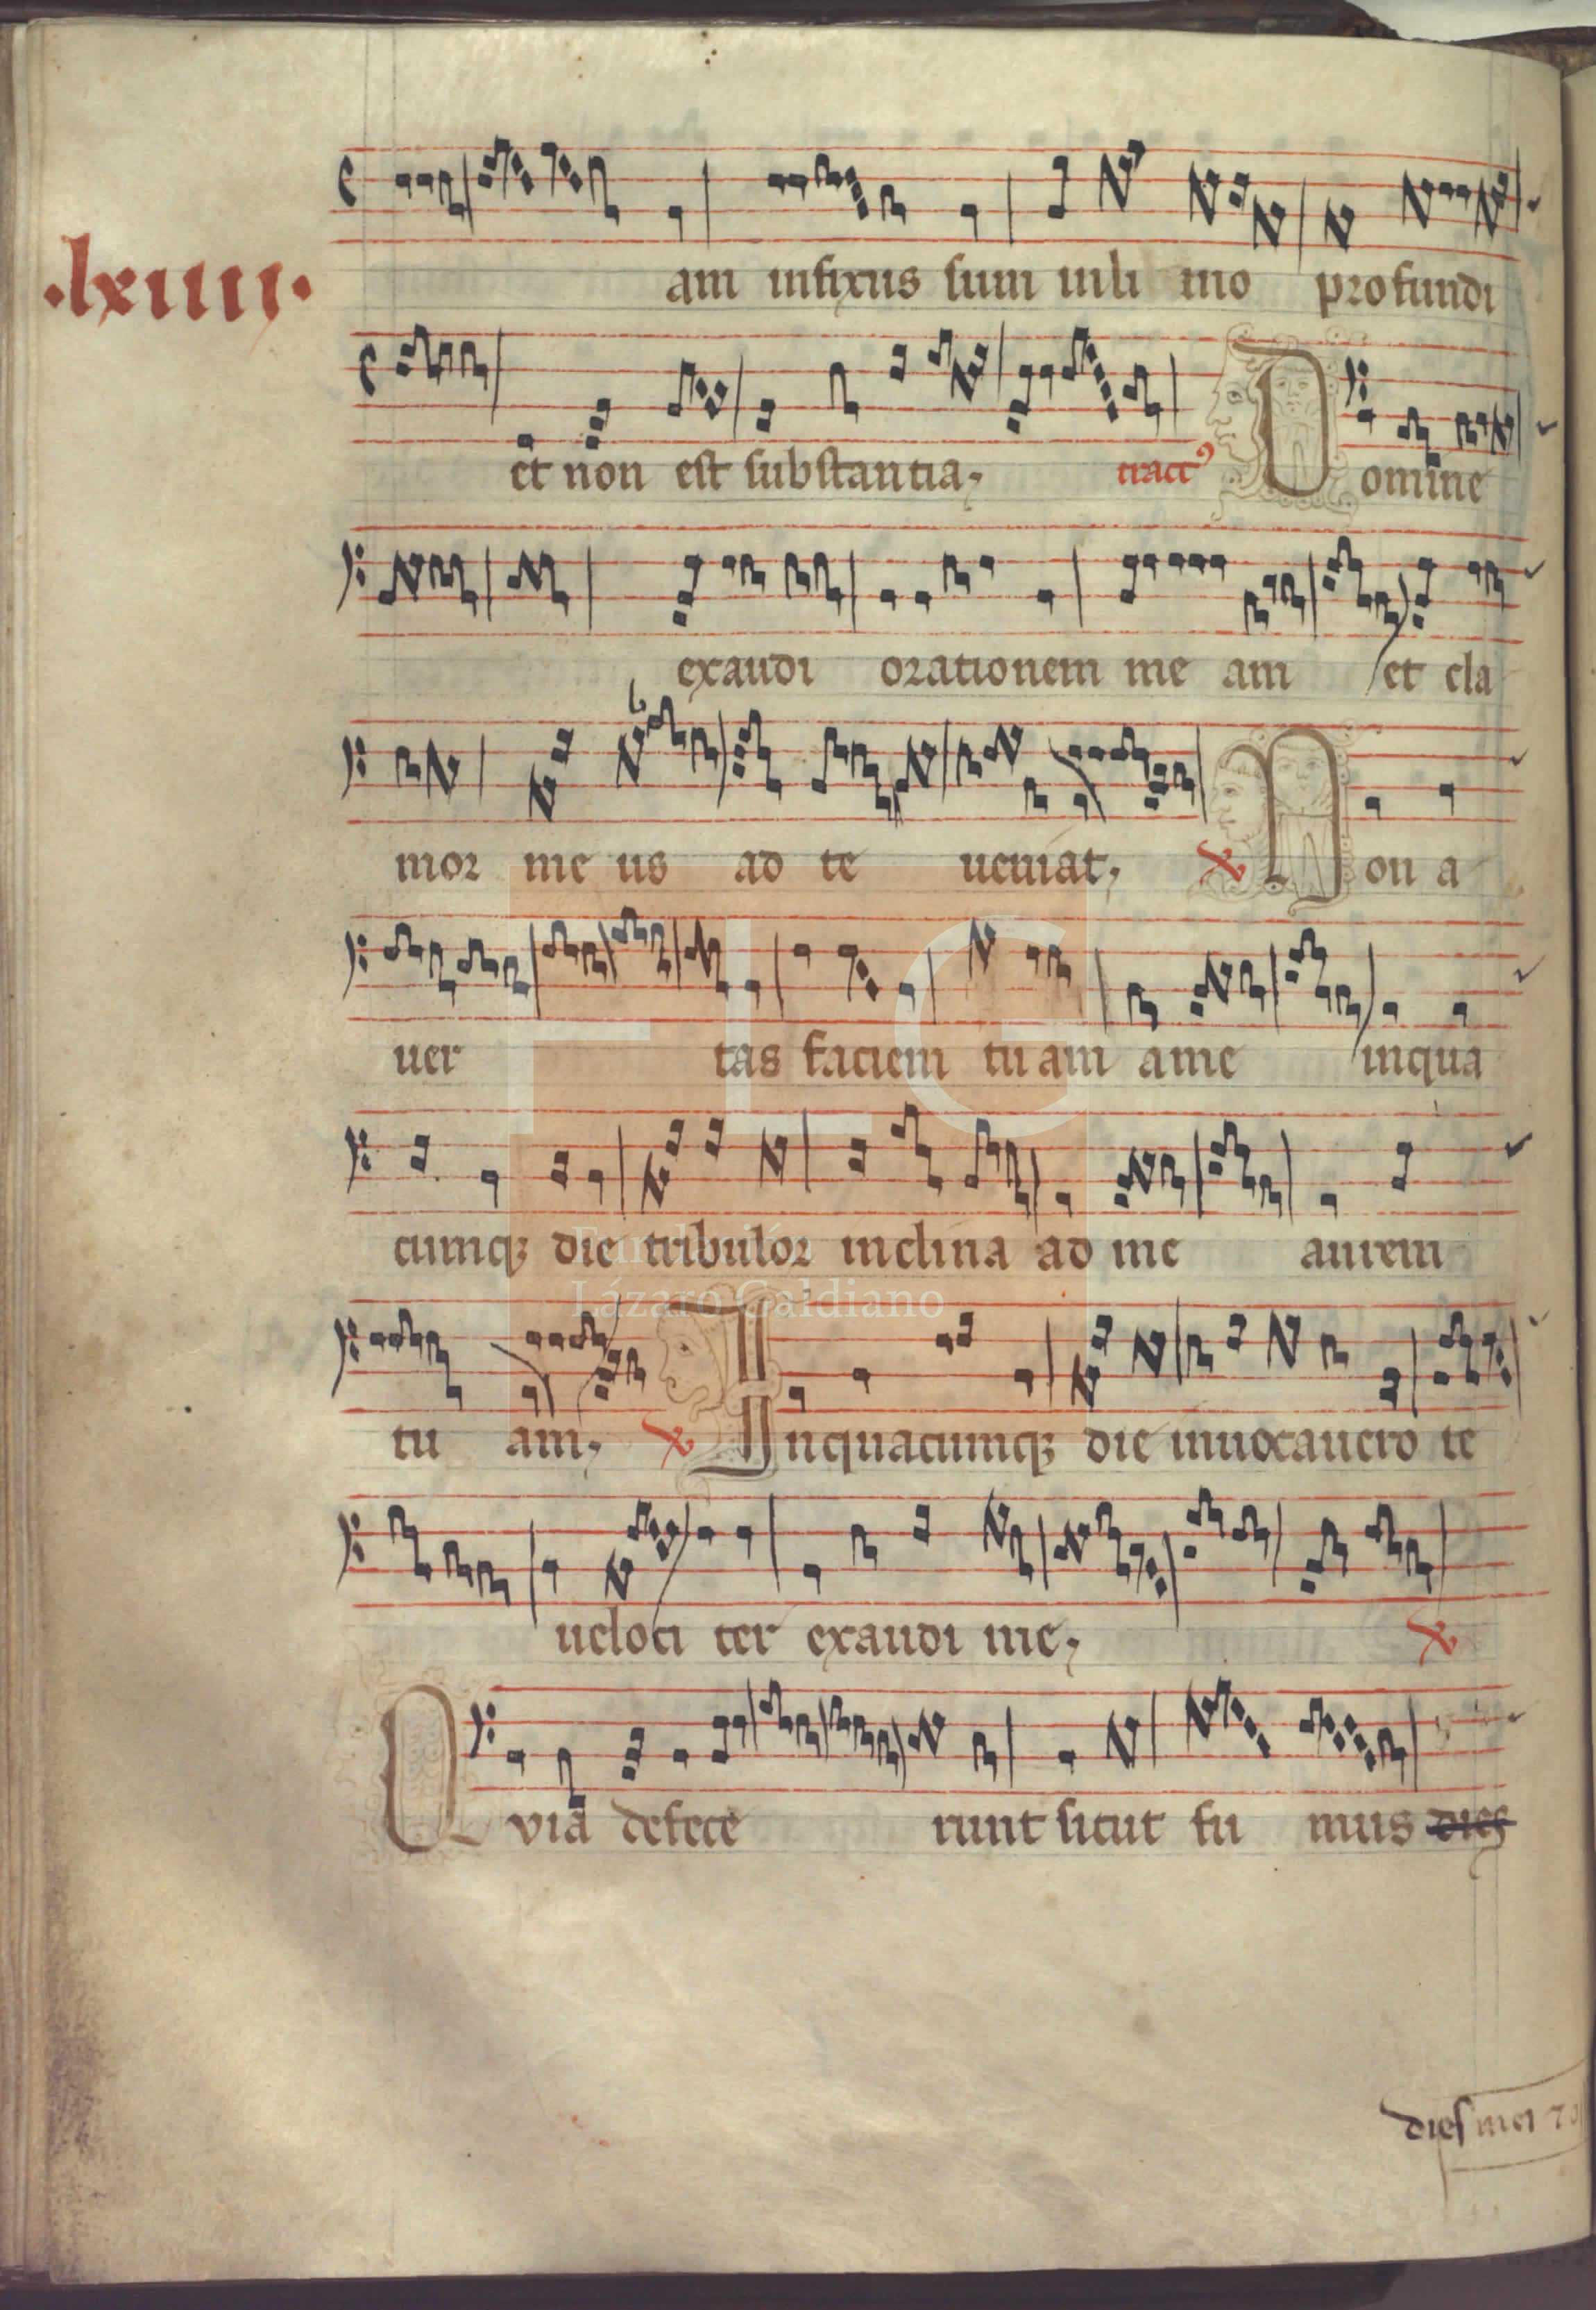 ·lxiiii·
am infixus sum in li mo profundi
et non est substantia, tract9 Domine
exaudi orationem me am et cla
mor me us ad te ueniat, ꝟ Non a
uer tas faciem tuam ame inqua
cumqꝫ die tribulor inclina ad me aurem
tu am, ꝟ Inquacumqꝫ die inuocauero te
ueloci ter exaudi me, ꝟ
Qvia defece runt sicut fu mus dies
dies mei ⁊
FLG
Fundación
Lázaro Galdiano